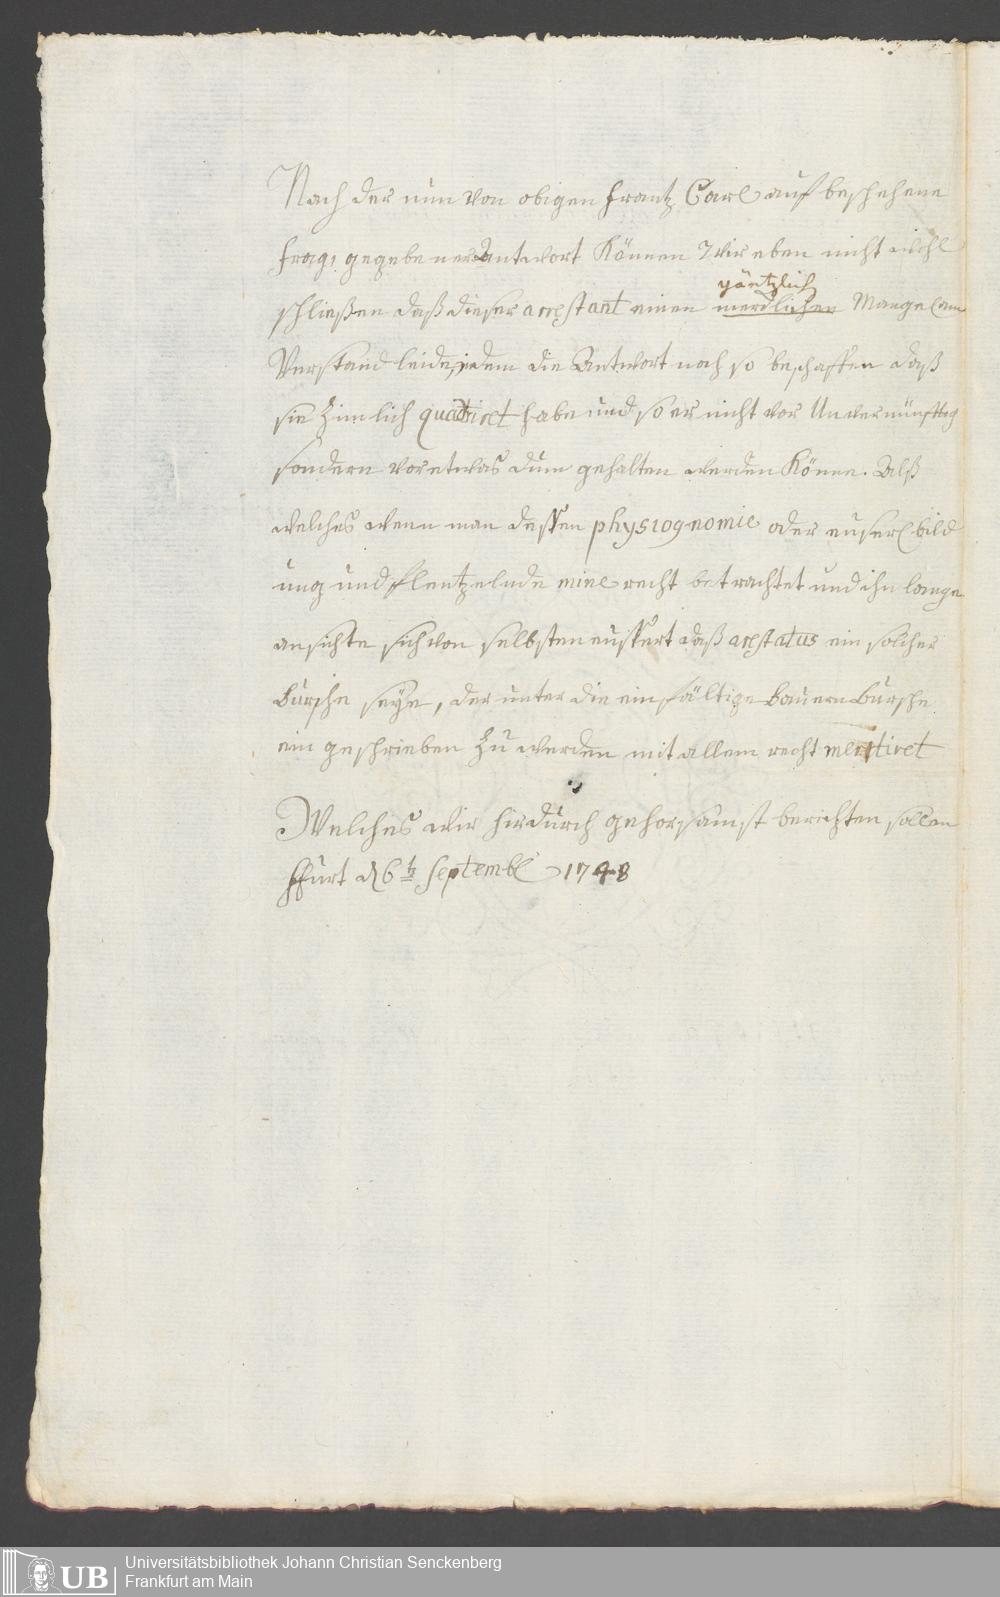 Nach der nun von obigen Frantz Carl auf beschehene
frag, gegebener Antwort Können Wir eben nicht wohl
gäntzlich
schließen daß dieser arrestant einen merklichen Mangel am
Verstand leide, indem die Antwort noch so beschaffen daß
sie Zimlich quadriret habe und so er nicht vor Unvernünfftig
sondern vor etwas dum gehalten werden Könne. Alß
welches wenn man dessen physiognomie oder euserl bild
ung und flentzelnde mine recht betrachtet und ihn lange
ansichte sich von selbsten eussert daß arestatus ein solcher
Bursche seye, der unter die einfältige Bauern Bursche
ein geschrieben Zu werden mit allem recht meritiret
Welches Wir hirdurch gehorsamst berichten sollen
ffurt d 6t Septembl 1748
Universitätsbibliothek Johann Christian Senckenberg
Frankfurt am Main
UB